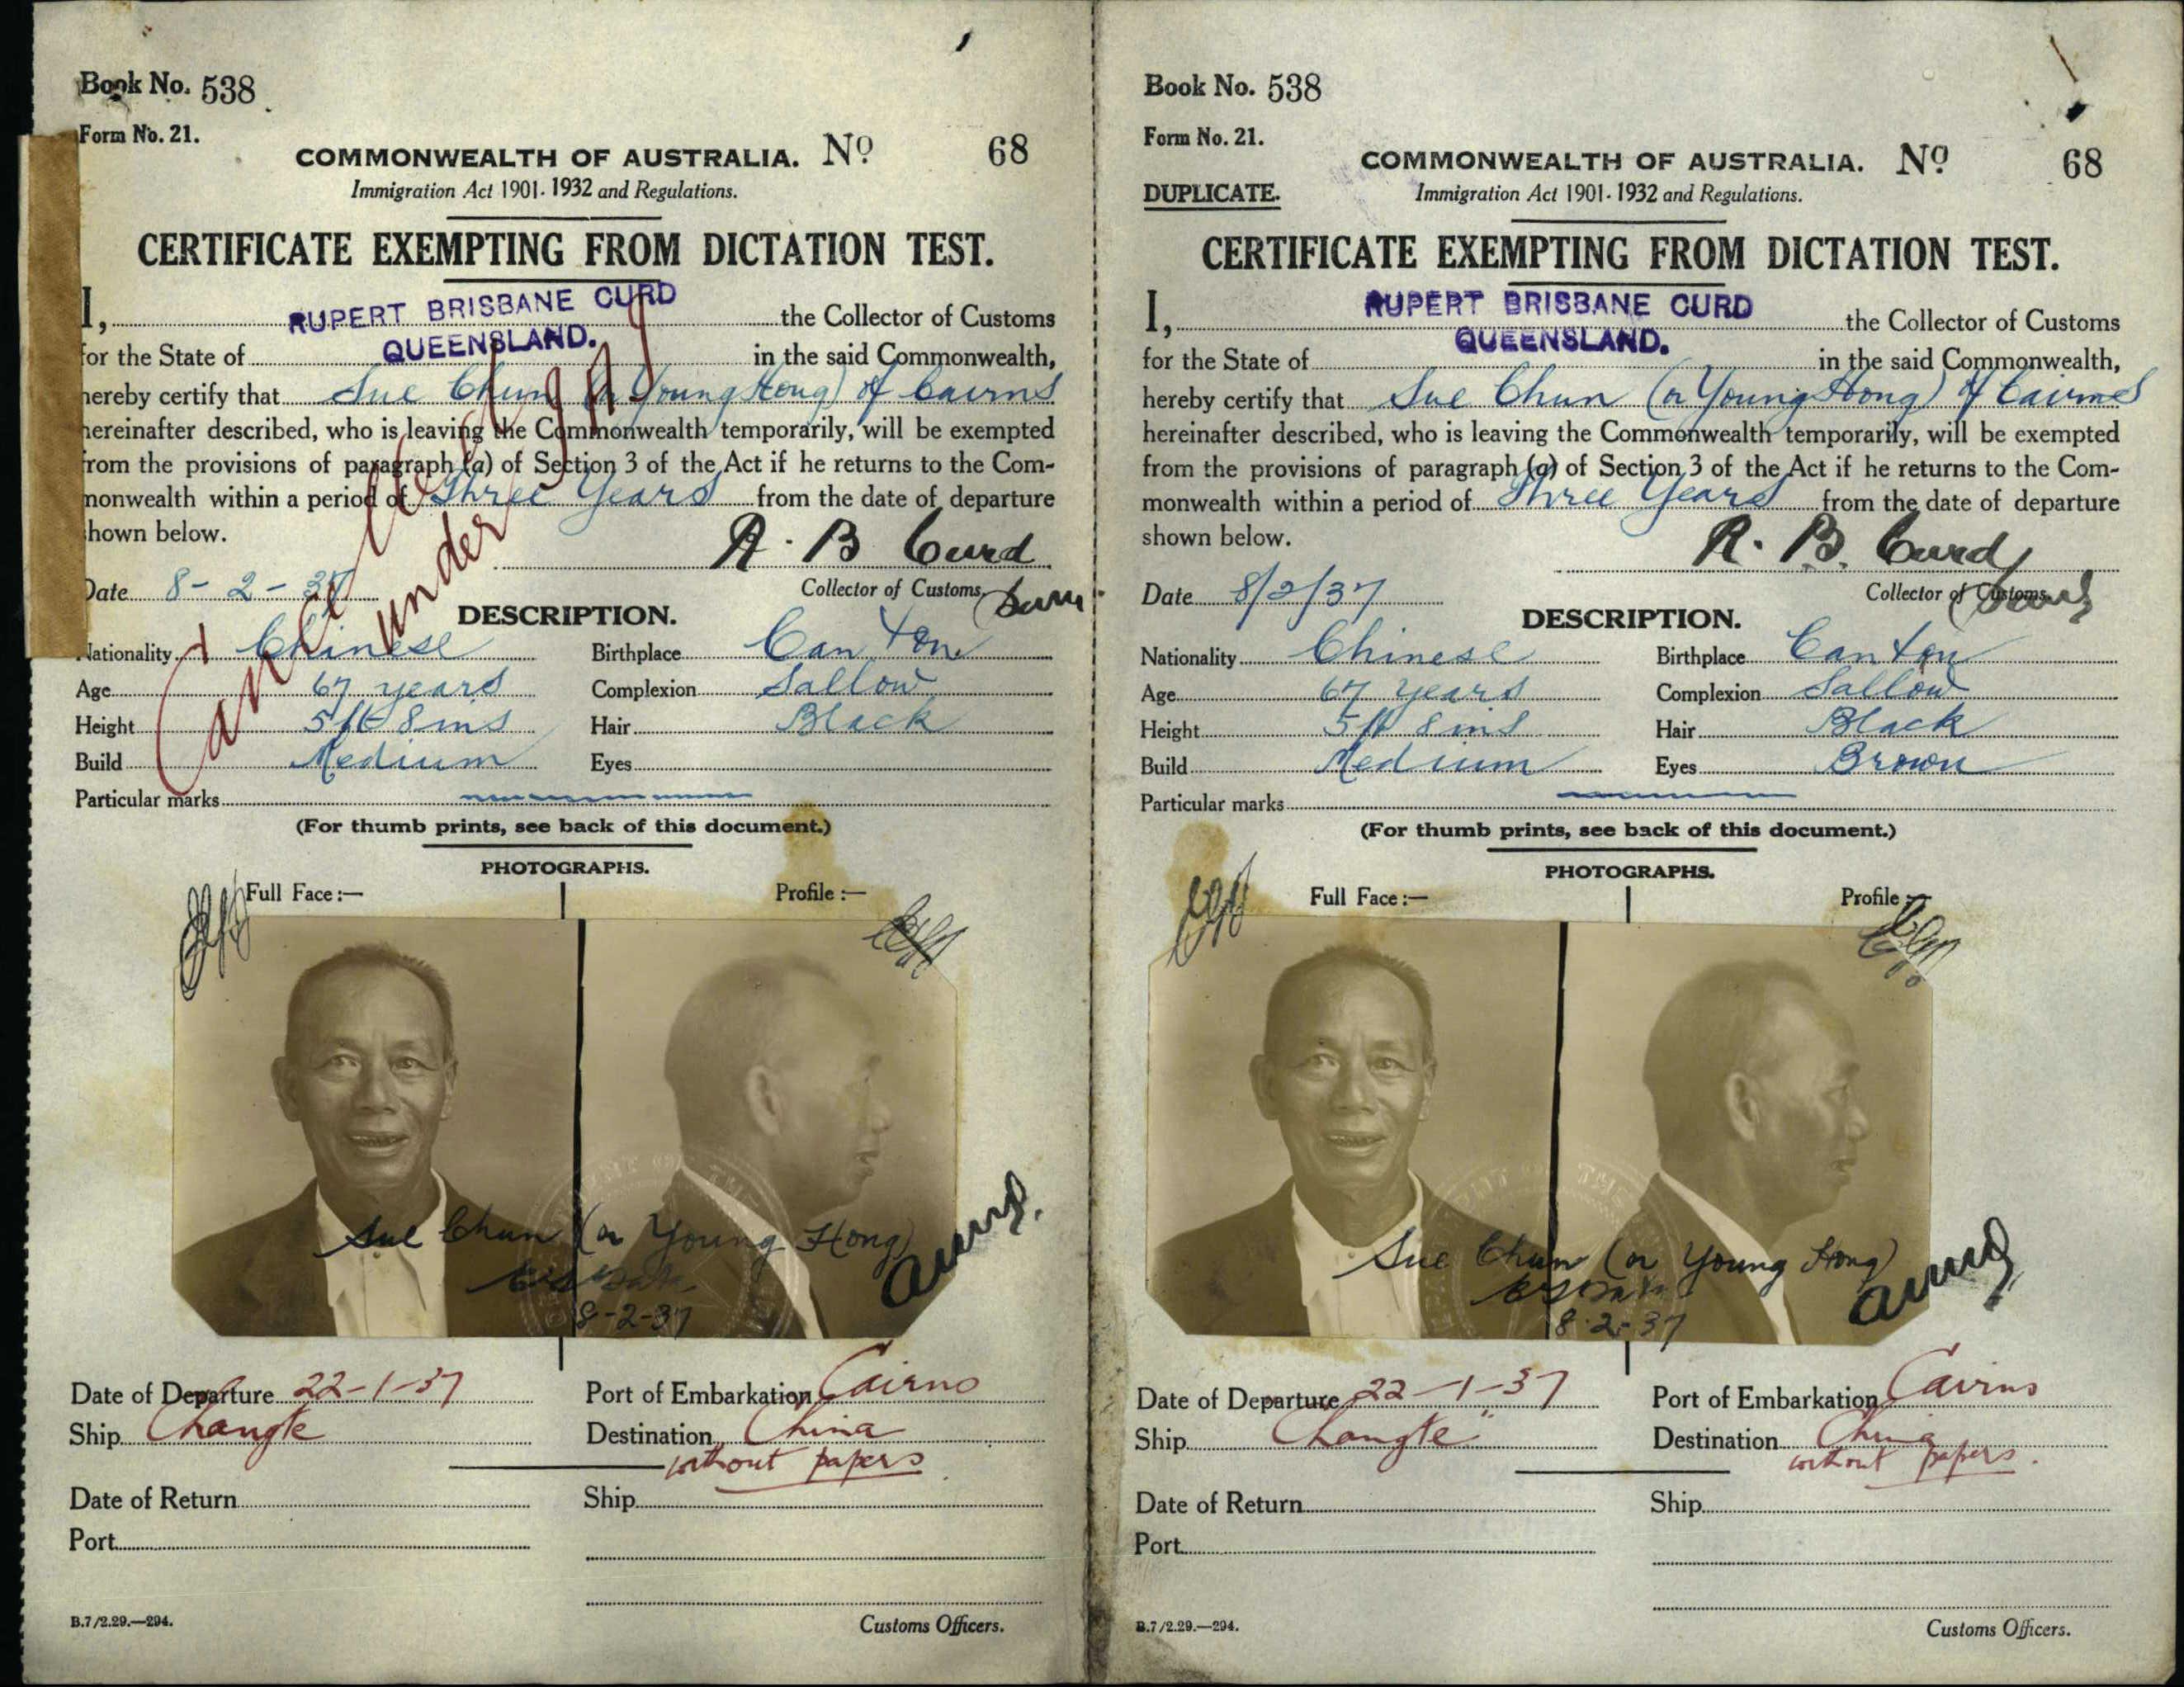 Book No. 538
Form No. 21.
COMMONWEALTH OF AUSTRALIA. No 68
Immigration Act 1901-1932 and Regulations.
CERTIFICATE EXEMPTING FROM DICTATION TEST.
I, RUPERT BRISBANE CURD the Collector of Customs
for the State of QUEENSLAND. in the said Commonwealth,
hereby certify that Sue Chun (or Young Hong) of Cairns
hereinafter described, who is leaving the Commonwealth temporarily, will be exempted
from the provisions of paragraph (a) of Section 3 of the Act if he returns to the Com-
monwealth within a period of Three Years from the date of departure
shown below.
R. B Curd
Date 8-2-37 Collector of Customs
Cancelled
under
DESCRIPTION.
Nationality Chinese Birthplace Canton
Age 67 years Complexion Sallow
Height 5 ft 8 ins Hair Black
Build Medium Eyes
Particular marks
(For thumb prints, see back of this document.)
PHOTOGRAPHS.
Full Face :— Profile :—
Sue Chun (or Young Hong)
8-2-37
Date of Departure 22-1-37 Port of Embarkation Cairns
Ship Changte Destination China
without papers
Date of Return Ship
Port
B.7/2.29.—294. Customs Officers.
Book No. 538
Form No. 21.
COMMONWEALTH OF AUSTRALIA. No 68
DUPLICATE. Immigration Act 1901-1932 and Regulations.
CERTIFICATE EXEMPTING FROM DICTATION TEST.
I, RUPERT BRISBANE CURD the Collector of Customs
for the State of QUEENSLAND. in the said Commonwealth,
hereby certify that Sue Chun (or Young Hong) of Cairns
hereinafter described, who is leaving the Commonwealth temporarily, will be exempted
from the provisions of paragraph (a) of Section 3 of the Act if he returns to the Com-
monwealth within a period of Three Years from the date of departure
shown below.
R. B. Curd
Date 8/2/37 Collector of Customs
DESCRIPTION.
Nationality Chinese Birthplace Canton
Age 67 years Complexion Sallow
Height 5 ft 8 ins Hair Black
Build Medium Eyes Brown
Particular marks
(For thumb prints, see back of this document.)
PHOTOGRAPHS.
Full Face :— Profile :—
Sue Chun (or Young Hong)
8-2-37
Date of Departure 22-1-37 Port of Embarkation Cairns
Ship "Changte" Destination China
without papers.
Date of Return Ship
Port
B.7/2.29.—294. Customs Officers.